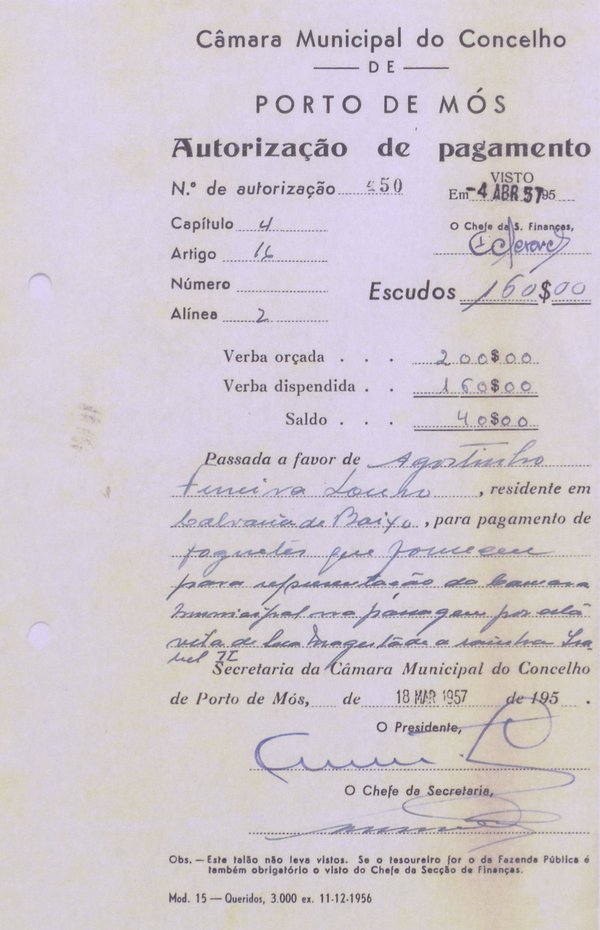 Câmara Municipal do Concelho
DE
PORTO DE MÓS
Autorização de pagamento
N.º de autorização 450
VISTO
Em -4 ABR 57 195
Capítulo 4
O Chefe da S. Finanças,
Artigo 16
Número
Escudos 160$00
Alínea 2
Verba orçada . . . 200$00
Verba dispendida . . 160$00
Saldo . . . 40$00
Passada a favor de Agostinho
Ferreira Louro, residente em
Calvaria de Baixo, para pagamento de
foguetes que forneceu
para representação da Camara
Municipal na passagem por esta
vila de Sua Magestade a rainha Isa
bel II
Secretaria da Câmara Municipal do Concelho
de Porto de Mós, de 18 MAR 1957 de 195 .
O Presidente,
O Chefe da Secretaria,
Obs. — Este talão não leva vistos. Se o tesoureiro for o da Fazenda Pública é
também obrigatório o visto do Chefe da Secção de Finanças.
Mod. 15 — Queridos, 3.000 ex. 11-12-1956